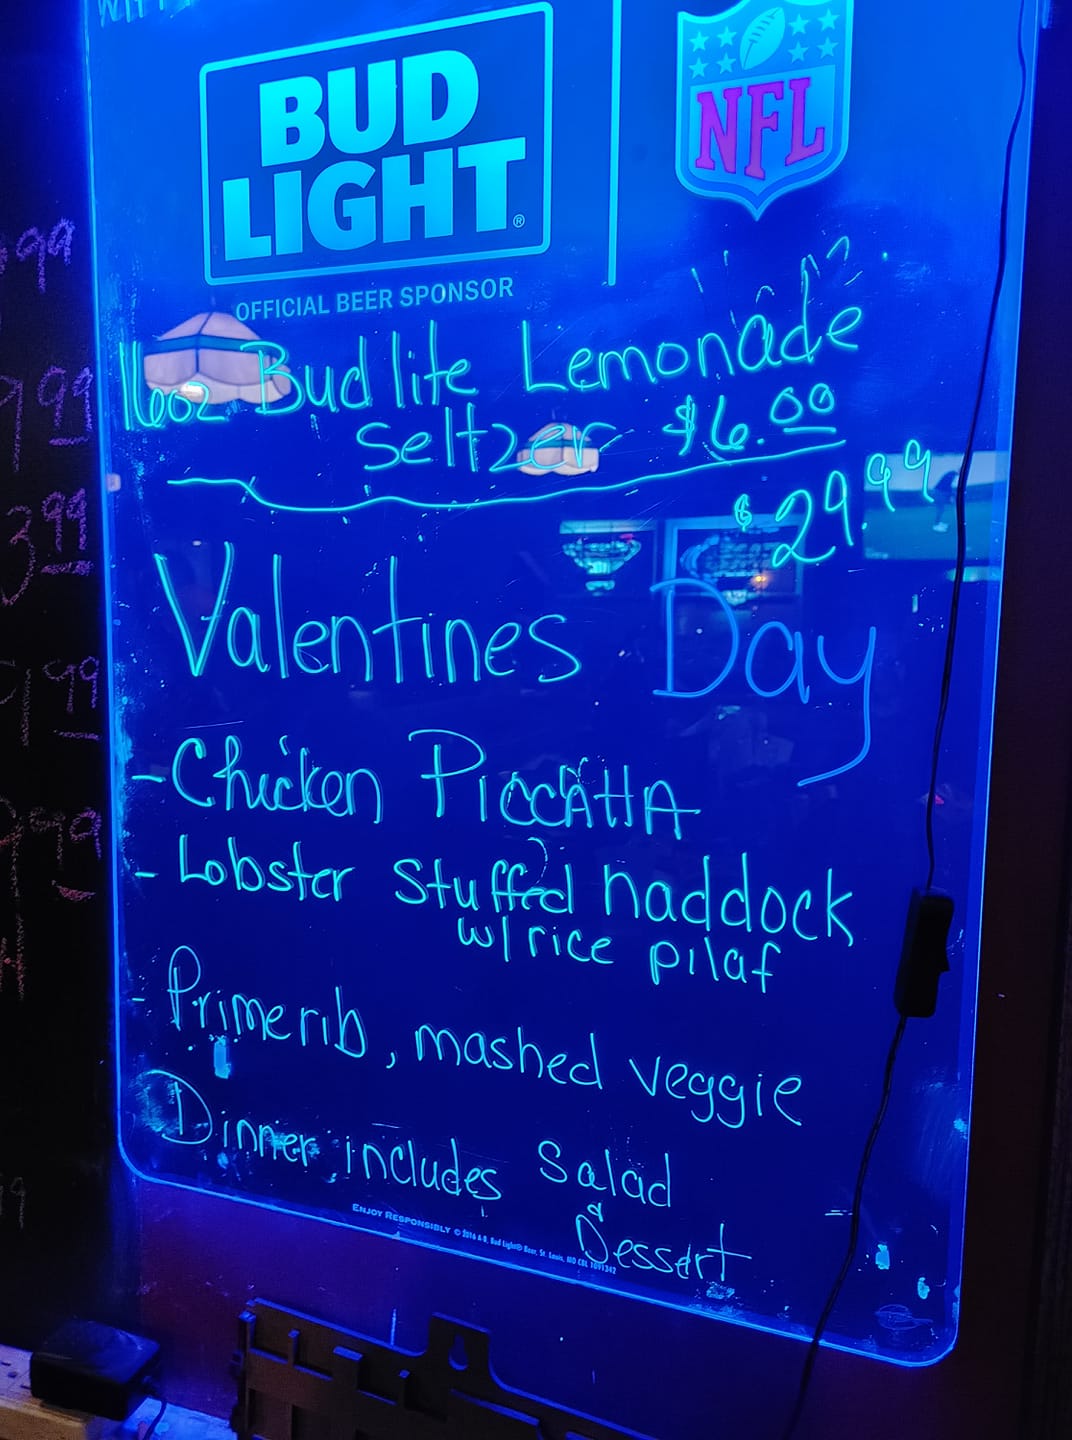 BUD
LIGHT®
NFL
OFFICIAL BEER SPONSOR
16oz Bud lite Lemonade
Seltzer $6.00
$29.99
Valentines Day
- Chicken PICCATTA
- Lobster Stuffed haddock
w/ rice pilaf
- Prime rib, mashed veggie
Dinner includes Salad
&
Dessert
ENJOY RESPONSIBLY © 2016 A-B, Bud Light® Beer, St. Louis, MO
99
99
399
99
99